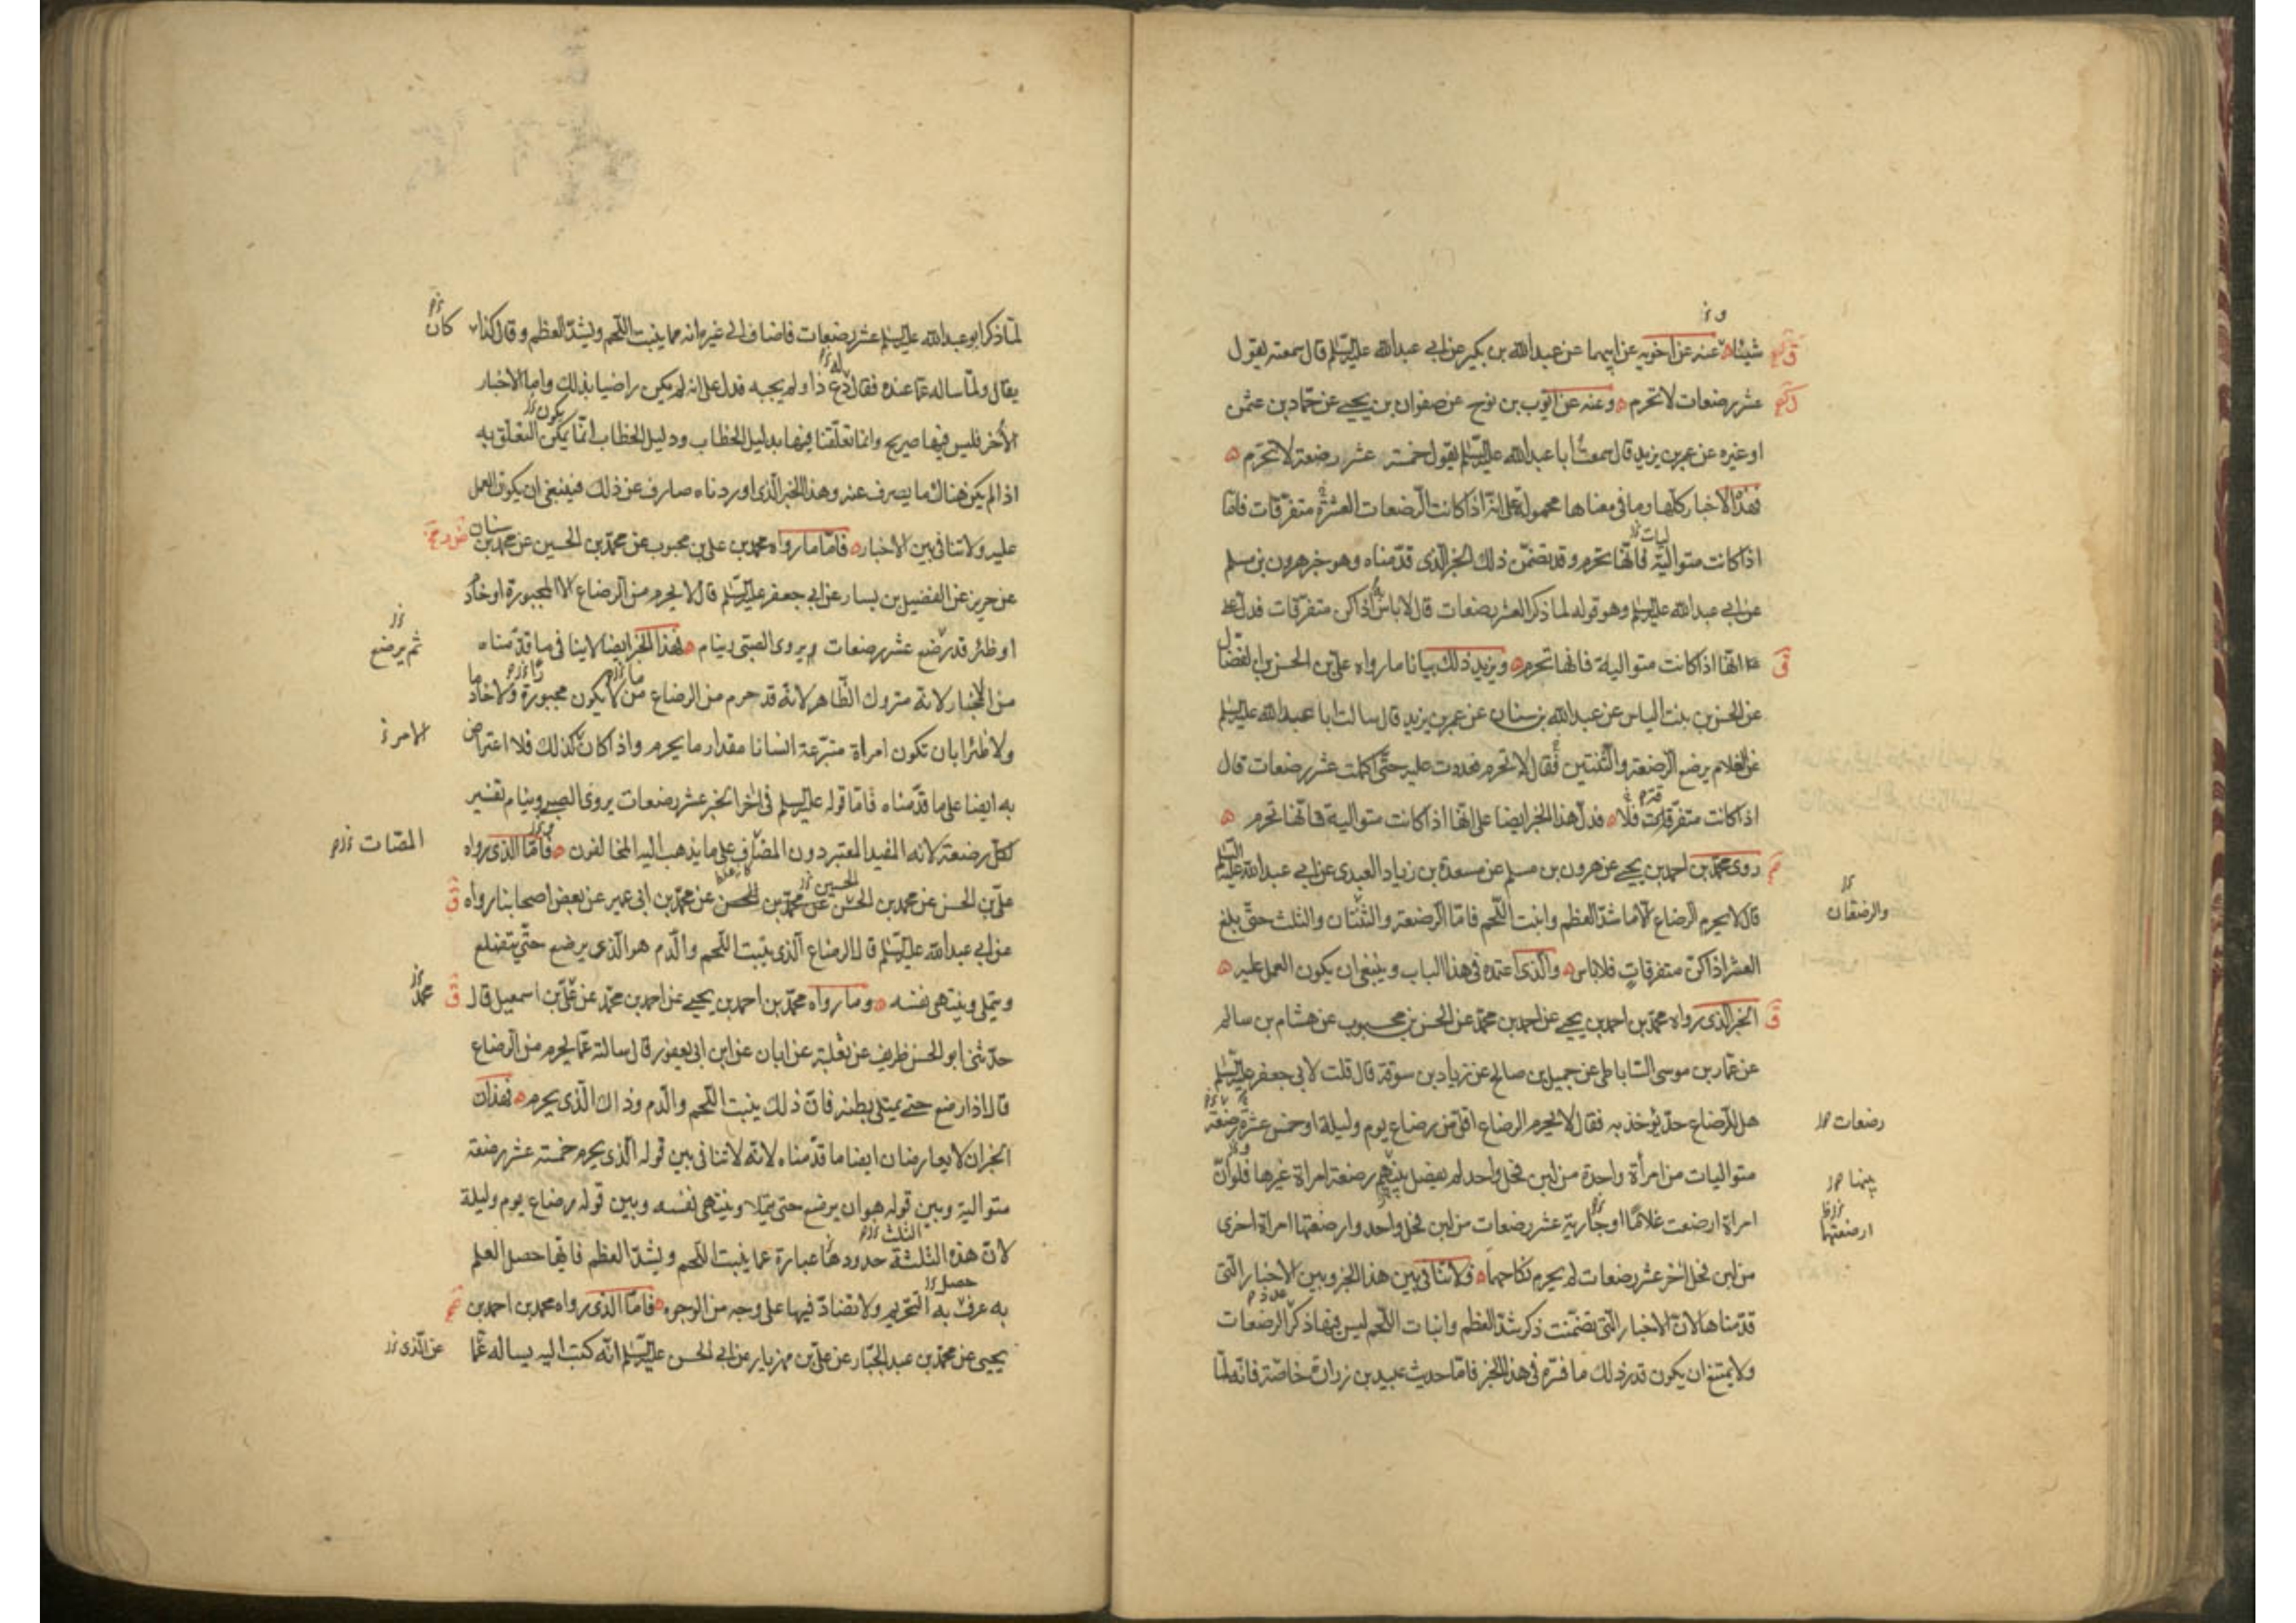 شيئا وعنه عن اخويه عن ابيهما عن عبد الله بن بكير عن ابي عبد الله عليه السلم قال سمعته يقول
عشر رضعات لا تحرم وعنه عن ايوب بن نوح عن صفوان بن يحيى عن حماد بن عثمن
او غيره عن عمر بن يزيد قال سمعت ابا عبد الله عليه السلم يقول خمسة عشر رضعة لا تحرم
فهذه الاخبار كلها وما في معناها محمولة على انه اذا كانت الرضعات العشرة متفرقات فاما
اذا كانت متوالية فانها تحرم وقد تضمن ذلك الخبر الذي قدمناه وهو خبر هرون بن مسلم
عن ابي عبد الله عليه السلم وهو قوله لما ذكر العشر رضعات قال لا باس اذا كن متفرقات فدل على
انها اذا كانت متوالية فانها تحرم ويزيد ذلك بيانا ما رواه علي بن الحسن بن الفضال
عن الحسن بن بنت الياس عن عبد الله بن سنان عن عمر بن يزيد قال سالت ابا عبد الله عليه السلم
عن الغلام يرضع الرضعة والثنتين فقال لا تحرم فعددت عليه حتى اكملت عشر رضعات قال
اذا كانت متفرقات فلا فدل هذا الخبر ايضا على انها اذا كانت متوالية فانها تحرم
روى محمد بن احمد بن يحيى عن هرون بن مسلم عن مسعدة بن زياد العبدي عن ابي عبد الله عليه السلم
والرضعتان
قال لا يحرم الرضاع الا ما شد العظم وانبت اللحم فاما الرضعة والثنتان والثلث حتى بلغ
العشر اذا كن متفرقات فلا باس والذي اعتمده في هذا الباب وينبغي ان يكون العمل عليه
الخبر الذي رواه محمد بن احمد بن يحيى عن احمد بن محمد عن الحسن بن محبوب عن هشام بن سالم
عن عمار بن موسى الساباطي عن جميل بن صالح عن زياد بن سوقة قال قلت لابي جعفر عليه السلم
رضعات
هل للرضاع حد يؤخذ به فقال لا يحرم الرضاع اقل من رضاع يوم وليلة او خمس عشرة رضعة
بينها
متواليات من امرأة واحدة من لبن فحل واحد لم يفصل بينهم رضعة امراة غيرها فلو ان
ارضعتها
امراة ارضعت غلاما او جارية عشر رضعات من لبن فحل واحد وارضعتها امراة اخرى
من لبن فحل اخر عشر رضعات لم يحرم نكاحهما ولا تنافي بين هذا الخبر وبين الاخبار التي
قدمناها لان الاخبار التي تضمنت ذكر شد العظم وانبات اللحم ليس فيها ذكر الرضعات
ولا يمتنع ان يكون قدر ذلك ما فسره في هذا الخبر فاما حديث عبيد بن زرارة خاصة فانه لما
لما ذكر ابو عبد الله عليه السلم عشر رضعات فاضاف الى غيره انه مما ينبت اللحم ويشد العظم وقال كذا كان
يقال ولما ساله عما عنده فقال دع ذا ولم يجبه فدل على انه لم يكن راضيا بذلك واما الاخبار
الاخر فليس فيها صريح وانما تعلقنا فيها بدليل الخطاب ودليل الخطاب انما يمكن التعلق به
اذا لم يكن هناك ما يصرف عنه وهذا الخبر الذي اوردناه صارف عن ذلك فينبغي ان يكون العمل
عليه ولا تنافي بين الاخبار فاما ما رواه محمد بن علي بن محبوب عن محمد بن الحسين عن محمد بن سنان
عن حريز عن الفضيل بن يسار عن ابي جعفر عليه السلم قال لا يحرم من الرضاع الا المجبورة او خادم
او ظئر قد رضع عشر رضعات ويروى الصبي وينام فهذا الخبر ايضا لا ينافي ما قدمناه
ثم يرضع
من الاخبار لانه متروك الظاهر لانه قد حرم من الرضاع من لا يكون مجبورة ولا خادما
ولا ظئرا بان تكون امراة متبرعة انسانا مقدار ما يحرم واذا كان كذلك فلا اعتراض
به ايضا على ما قدمناه فاما قوله عليه السلم في اخر الخبر عشر رضعات يروى الصبي وينام تفسير
لكل رضعة لانه المفيد المعتبر دون المضاف على ما يذهب اليه المخالفون فاما الذي رواه
المصات
علي بن الحسن عن محمد بن الحسن عن محمد بن الحسن عن محمد بن ابي عمير عن بعض اصحابنا رواه
عن ابي عبد الله عليه السلم قال الرضاع الذي ينبت اللحم والدم هو الذي يرضع حتى يتضلع
ويتملى وينتهى نفسه وما رواه محمد بن احمد بن يحيى عن احمد بن محمد عن علي بن اسمعيل قال
محمد
حدثني ابو الحسن ظريف عن ثعلبة عن ابان عن ابن ابي يعفور قال سالته عما يحرم من الرضاع
قال اذا رضع حتى يمتلي بطنه فان ذلك ينبت اللحم والدم وذاك الذي يحرم فهذان
الخبران لا يعارضان ايضا ما قدمناه لانه لا تنافي بين قوله الذي يحرم خمسة عشر رضعة
متوالية وبين قوله هو ان يرضع حتى يتملا وينتهى نفسه وبين قوله رضاع يوم وليلة
لان هذه الثلثة حدودها عبارة عما ينبت اللحم ويشد العظم فايها حصل العلم
به عرف به التحريم ولا تضاد فيها على وجه من الوجوه فاما الذي رواه محمد بن احمد بن
يحيى عن محمد بن عبد الجبار عن علي بن مهزيار عن ابي الحسن عليه السلم انه كتب اليه يساله عما
عن الذي